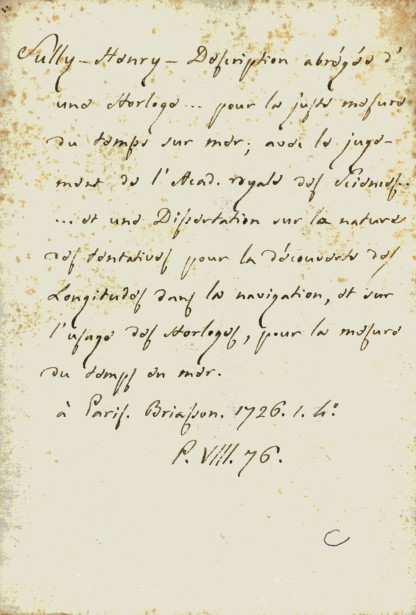 Sully-Henry-Description abrégée d'
une Horloge... pour la juste mesure
du temps sur mer; avec le juge-
ment de l'Acad. royale des Sciences..
... et une Dissertation sur la nature
des tentatives pour la découverte des
Longitudes dans la navigation, et sur
l'usage des Horloges, pour la mesure
du temps en mer.
à Paris. Briasson. 1726. 1. 4°
P. VIII. 76.
C